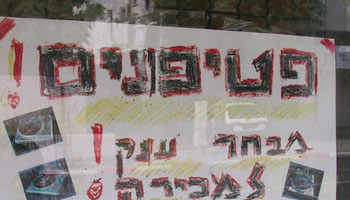 פטיפנים!
מבחר ענק!
למכירה!